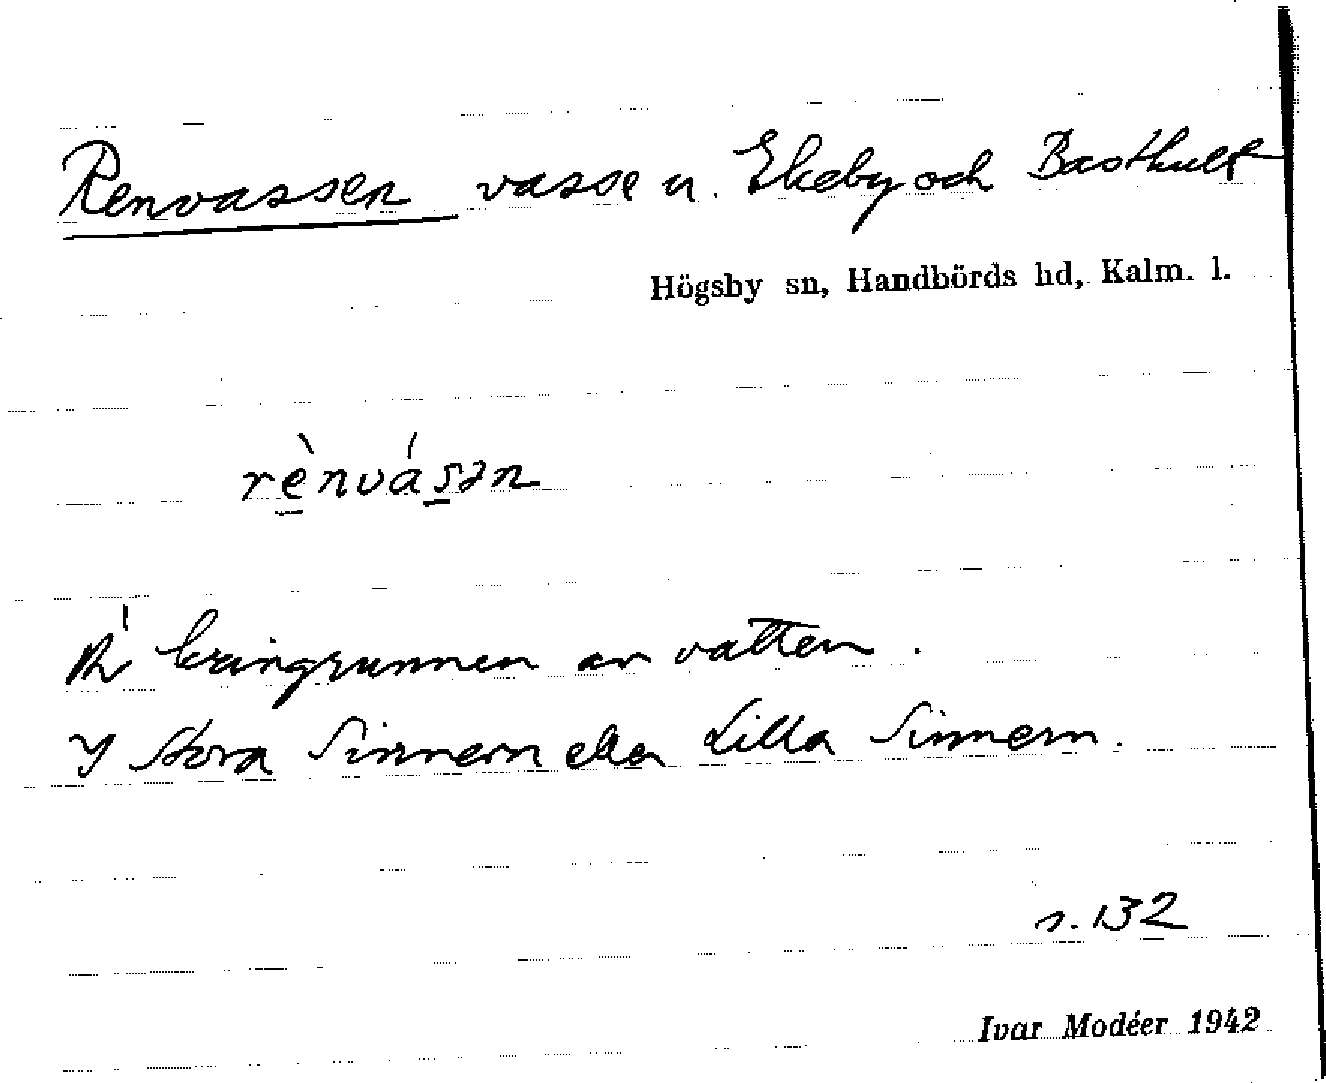 Renvassen vasse u. Ekeby och Basthult
Högsby sn, Handbörds hd, Kalm. l.
rènvásən
Är kringrunnen av vatten.
I Stora Sinnern eller Lilla Sinnern.
s. 132
Ivar Modéer 1942